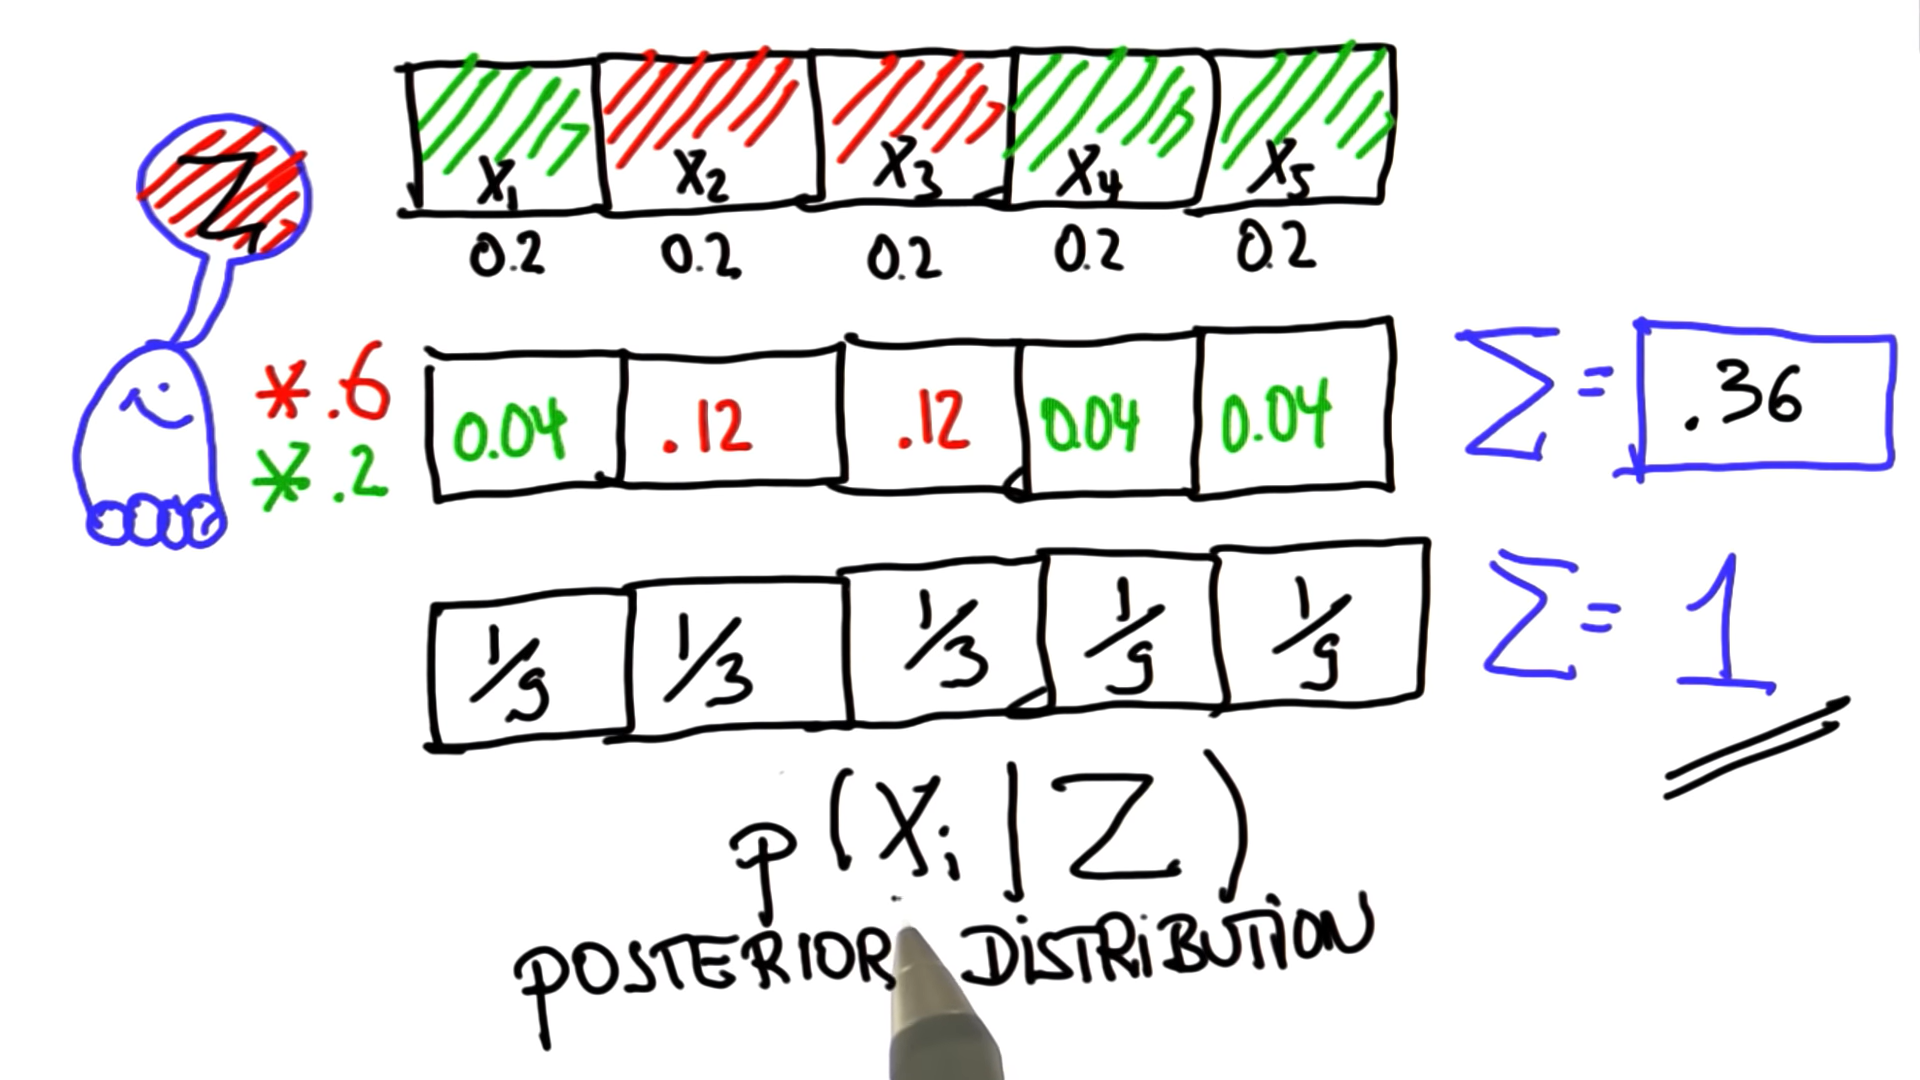 Z
X1 X2 X3 X4 X5
0.2 0.2 0.2 0.2 0.2
*.6
*.2
0.04 .12 .12 0.04 0.04
Σ = .36
1/9 1/3 1/3 1/9 1/9
Σ = 1
p(Xi|Z)
POSTERIOR DISTRIBUTION